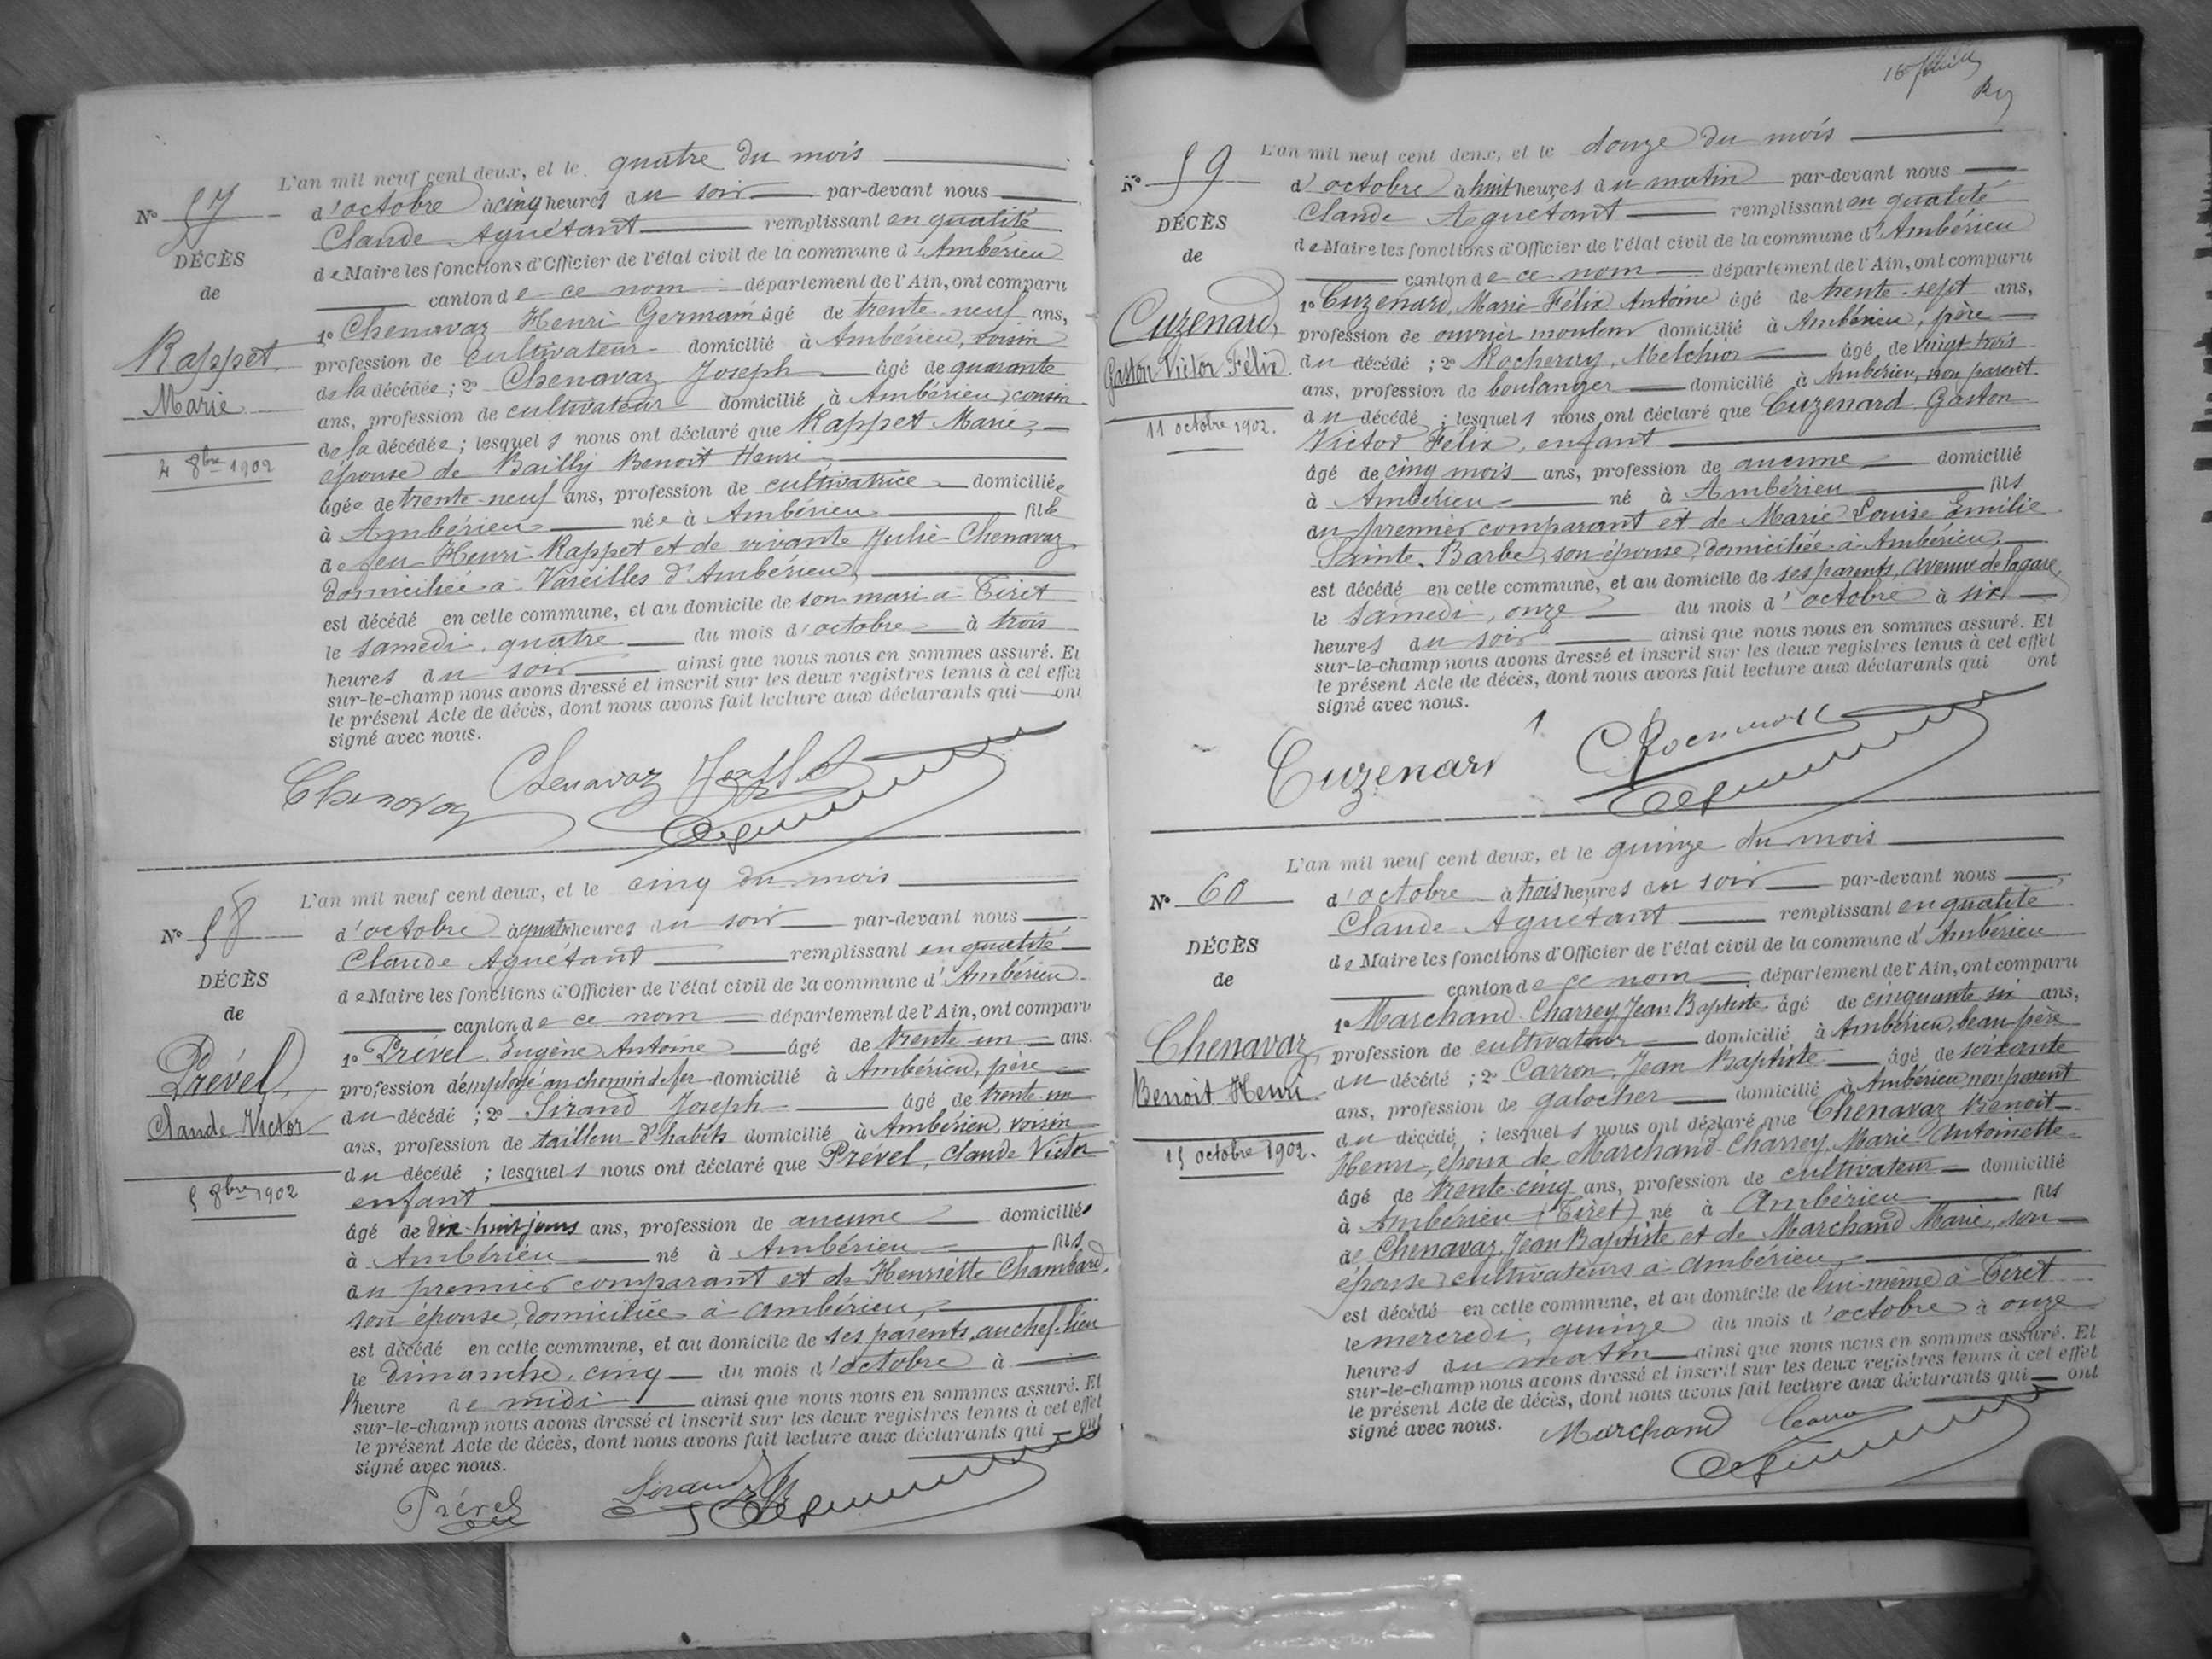 L'an mil neuf cent deux, et le quatre du mois
Nº 57 d'octobre à cinq heures du soir par-devant nous
Claude Aguétant remplissant en qualité
DÉCÈS de Maire les fonctions d'Officier de l'état civil de la commune d'Ambérieu
de canton de ce nom département de l'Ain, ont comparu
1º Chenavaz Henri Germain âgé de trente-neuf ans,
Rappet profession de cultivateur domicilié à Ambérieu, voisin
de la décédée ; 2º Chenavaz Joseph âgé de quarante
Marie ans, profession de cultivateur domicilié à Ambérieu, cousin
de la décédée ; lesquels nous ont déclaré que Rappet Marie,
4 8bre 1902 épouse de Bailly Benoit Henri
âgée de trente-neuf ans, profession de cultivatrice domiciliée
à Ambérieu née à Ambérieu fille
de feu Henri Rappet et de vivante Julie Chenavaz
domiciliée à Vareilles d'Ambérieu,
est décédé en cette commune, et au domicile de son mari à Tiret
le samedi, quatre du mois d'octobre à trois
heures du soir ainsi que nous nous en sommes assuré. Et
sur-le-champ nous avons dressé et inscrit sur les deux registres tenus à cet effet
le présent Acte de décès, dont nous avons fait lecture aux déclarants qui ont
signé avec nous.
Chenavaz Chenavaz Joseph
L'an mil neuf cent deux, et le cinq du mois
Nº 58 d'octobre à quatre heures du soir par-devant nous
Claude Aguétant remplissant en qualité
DÉCÈS de Maire les fonctions d'Officier de l'état civil de la commune d'Ambérieu
de canton de ce nom département de l'Ain, ont comparu
1º Prével Eugène Antoine âgé de trente-un ans.
Prével, profession d'employé au chemin de fer domicilié à Ambérieu, père
du décédé ; 2º Sirand Joseph âgé de trente-un
Claude Victor ans, profession de tailleur d'habits domicilié à Ambérieu, voisin
du décédé ; lesquels nous ont déclaré que Prével, Claude Victor
5 8bre 1902 enfant
âgé de dix-huit jours ans, profession de aucune domicilié
à Ambérieu né à Ambérieu fils
du premier comparant et de Henriette Chambard,
son épouse, domiciliée à Ambérieu,
est décédé en cette commune, et au domicile de ses parents, au chef-lieu
le dimanche, cinq du mois d'octobre à
l'heure de midi ainsi que nous nous en sommes assuré. Et
sur-le-champ nous avons dressé et inscrit sur les deux registres tenus à cet effet
le présent Acte de décès, dont nous avons fait lecture aux déclarants qui ont
signé avec nous.
Prével Sirand
L'an mil neuf cent deux, et le douze du mois
Nº 59 d'octobre à huit heures du matin par-devant nous
Claude Aguétant remplissant en qualité
DÉCÈS de Maire les fonctions d'Officier de l'état civil de la commune d'Ambérieu
de canton de ce nom département de l'Ain, ont comparu
1º Cuzenard, Marie-Félix Antoine âgé de trente-sept ans,
Cuzenard, profession de ouvrier mouleur domicilié à Ambérieu, père
Gaston Victor Félix. du décédé ; 2º Melchior âgé de vingt-trois
ans, profession de boulanger domicilié à Ambérieu, non parent
11 octobre 1902. du décédé ; lesquels nous ont déclaré que Cuzenard Gaston
Victor Félix, enfant
âgé de cinq mois ans, profession de aucune domicilié
à Ambérieu né à Ambérieu fils
du premier comparant et de Marie Louise Emilie
Sainte-Barbe, son épouse, domiciliée à Ambérieu,
est décédé en cette commune, et au domicile de ses parents, avenue de la gare,
le samedi, onze du mois d'octobre à six
heures du soir ainsi que nous nous en sommes assuré. Et
sur-le-champ nous avons dressé et inscrit sur les deux registres tenus à cet effet
le présent Acte de décès, dont nous avons fait lecture aux déclarants qui ont
signé avec nous.
Cuzenard
L'an mil neuf cent deux, et le quinze du mois
Nº 60 d'octobre à trois heures du soir par-devant nous
Claude Aguétant remplissant en qualité
DÉCÈS de Maire les fonctions d'Officier de l'état civil de la commune d'Ambérieu
de canton de ce nom département de l'Ain, ont comparu
1º Marchand-Charrey Jean Baptiste âgé de cinquante-six ans,
Chenavaz, profession de cultivateur domicilié à Ambérieu, beau-père
Benoit Henri du décédé ; 2º Carron, Jean Baptiste âgé de soixante
ans, profession de galocher domicilié à Ambérieu, non parent
15 octobre 1902. du décédé ; lesquels nous ont déclaré que Chenavaz Benoit
Henri, époux de Marchand-Charrey, Marie-Antoinette
âgé de trente-cinq ans, profession de cultivateur domicilié
à Ambérieu (Tiret) né à Ambérieu fils
de Chenavaz, Jean Baptiste et de Marchand Marie, son
épouse, cultivateurs à Ambérieu
est décédé en cette commune, et au domicile de lui-même à Tiret
le mercredi, quinze du mois d'octobre à onze
heures du matin ainsi que nous nous en sommes assuré. Et
sur-le-champ nous avons dressé et inscrit sur les deux registres tenus à cet effet
le présent Acte de décès, dont nous avons fait lecture aux déclarants qui ont
signé avec nous. Marchand